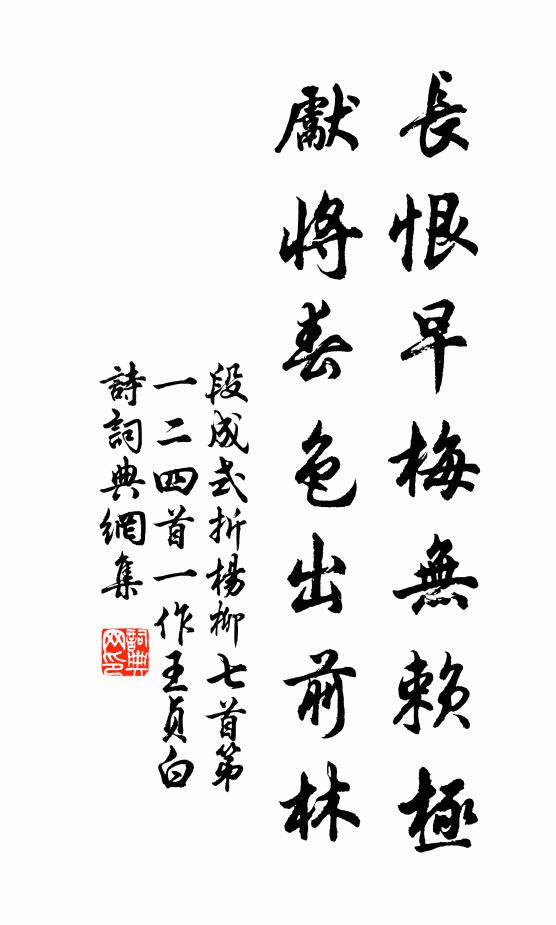 長恨早梅無賴極
獻將春色出前林
段成式折楊柳七首第
一二四首一作王貞白
詩詞典網集
詞典网印